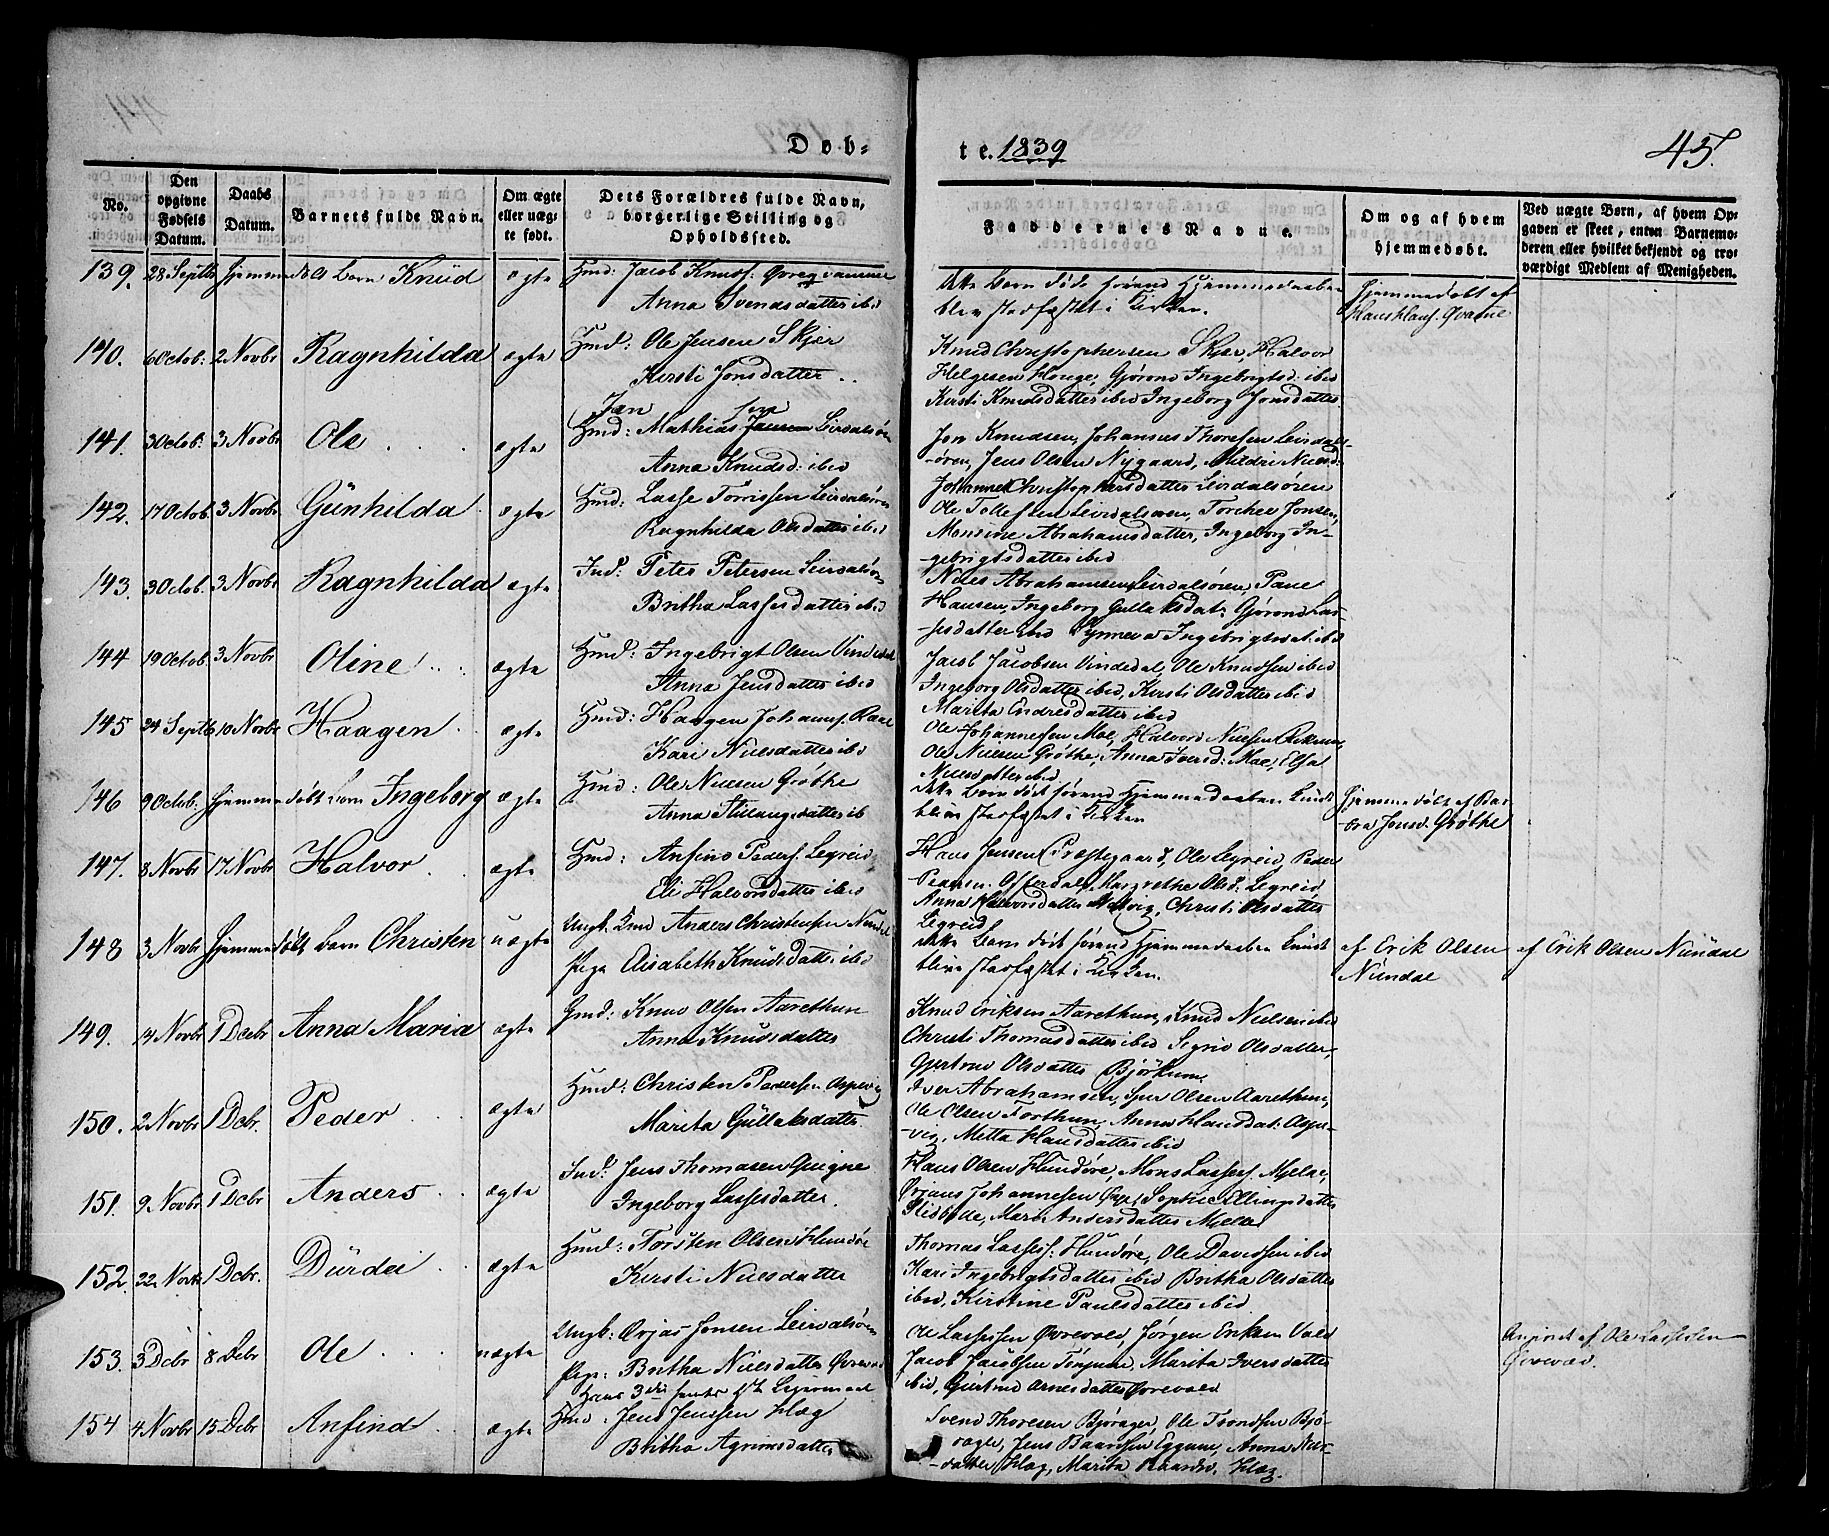 Døb-
te. 1839
45.
No.
Den opgivne Fødsels Datum.
Daabs Datum.
Barnets fulde Navn.
Om ægte eller uægte født.
Dets Forældres fulde Navn, borgerlige Stilling og Opholdssted.
Faddernes Navne.
Om og af hvem hjemmedøbt.
Ved uægte Børn, af hvem Opgaven er skeet, enten Barnemoderen eller hvilket bekjendt og troværdigt Medlem af Menigheden.
139. 28 Septb hjemmedøbt barn Knud ægte Hmd: Jacob Knuds.
Anna Svendsdatter ibid
blev stadfæstet i Kirken.
Hjemmedøbt af
140. 6 Octob: 2 Novbr Ragnhilda ægte Hmd: Ole Jensen Skjer
Kirsti Jonsdatter
Knud Christophersen Skjer, Halvor
Helgesen Houge, Gjørond Ingebrigtsd: ibid
Kirsti Knudsdatter ibid Ingeborg Jonsdatter
141. 3 Octob: 3 Novbr Ole ægte Hmd: Mathias Leirdalsøren
Anna Knudsd: ibid
Jon Knudsen, Johannes Thoresen Leirdals-
øren, Jens Olsen Nygaard, Mildri Nielsd:
Johanne Christophersdatter Leirdalsøren
142. 17 Octob. 3 Novbr Gunhilda ægte Hmd: Lasse Torrissen Leirdalsøren
Ragnhilda Olsdatter ibid
Ole Tollefsen Leirdalsøren, Torchel Jonsen,
Monsine Abrahamsdatter, Ingeborg In-
gebrigtsdatter ibid
143. 3 Octob. 3 Novbr Ragnhilda ægte Ind: Peter Petersen Leirdalsøren
Britha Lassesdatter ibid
Niels Abrahamsen Leirdalsøren, Paul
Hansen, Ingeborg Gullaksdat: Gjørond Las-
sesdatter ibid Synneva Ingebrigtsdat: ibid
144 19 Octob. 3 Novbr Oline ægte Hmd: Ingebrigt Olsen Vindedal
Anna Jensdatter ibid
Jacob Jacobsen Vindedal, Ole Knudsen ibid
Ingeborg Olsdatter ibid, Kirsti Olsdatter ibid
Marita Endresdatter ibid
145 24 Septb 10 Novbr Haagen ægte Hmd: Haagen Johanns.
Kari Nielsdatter ibid
Ole Johannesen Moe, Halvord Nielsen
Ole Nielsen Grøthe, Anna Iversd: Moe, Elsa
Nielsdatter ibid
146 9 Octob. hjemmedøbt barn Ingeborg ægte Hmd: Ole Nielsen Grøthe
Anna
blive stadfæstet i Kirken
Hjemmedøbt af Bar-
bra Jonsd. Grøthe
147. 8 Novbr 17 Novbr Halvor ægte Hmd: Anfind Peders. Legreid
Eli Halvorsdatter ibid
Hans Jensen Præstegaard, Ole Legreid, Peder
Pedersen Offerdal, Margrethe Olsd. Legreid
Anna Halvorsdatter, Christi Olsdatter
Legreid
148 3 Novbr hjemmedøbt barn Christen uægte Ungk. Knud Anders Christensen Nundal
Pige Elisabeth Knudsdatter ibid
Dette Barn døde førend Hjemmedaaben kunde
blive stadfæstet i Kirken.
af Erik Olsen
Nundal
af Erik Olsen Nundal
149. 14 Novbr 1 Decbr Anna Maria ægte Hmd: Knud Olsen Aarethun
Anna Knudsdatter
Knud Eriksen Aarethun, Knud Nielsen ibid
Christi Thomasdatter ibid Sigrid Olsdatter,
Gjertrud Olsdatter Bjørkum
150. 2 Novbr 1 Dcbr. Peder ægte Hmd: Christen Pedersen Aspevig
Marita Gullaksdatter
Iver Abrahamsen, Siur Olsen Aarethun,
Ole Olsen Forthun, Anna Hansdat: Aspe-
vig, Metta Hansdatter ibid
151. 9 Novbr 1 Dcbr Anders ægte Ind: Jens Thomasen Guigne
Ingeborg Lassesdatter
Hans Olsen Hundøre, Mons Lasses. Mjelde,
Ørjans Johannesen, Sophie Ellingsdatter
Marita Andersdatter Mjelde
152. 22 Novbr 1 Dcbr. Durdei ægte Hmd: Torsten Olsen Hundøre
Kirsti Nielsdatter
Thomas Lasses. Hundøre, Ole Davidsen ibid
Kari Ingebrigtsdatter ibid Britha Olsdatter
ibid, Kirstine Paulsdatter ibid
153. 3 Dcbr 8 Debr Ole uægte Ungk: Ørjas Jonsen Leirdalsøren
Pige: Britha Nielsdatter Ørevold
Hans 3die hendes 1ste Leiermaal
Ole Lassesen Ørevold, Jørgen Eriksen Vold
Jacob Jacobsen Tønjum, Marita Iversdatter
ibid, Gjertrud Arnesdatter Ørevold
Angivet af Ole Lassesen
Ørevold.
154 4 Novbr 15 Dcbr Anfind ægte Hmd: Jens Jenssen Hæg
Britha Agrimsdatter
Svend Thoresen Bjørager, Ole Trondsen Bjø-
rager, Jens Baardsen Eggum, Anna
datter Hæg, Marita Baardsd. Hæg.